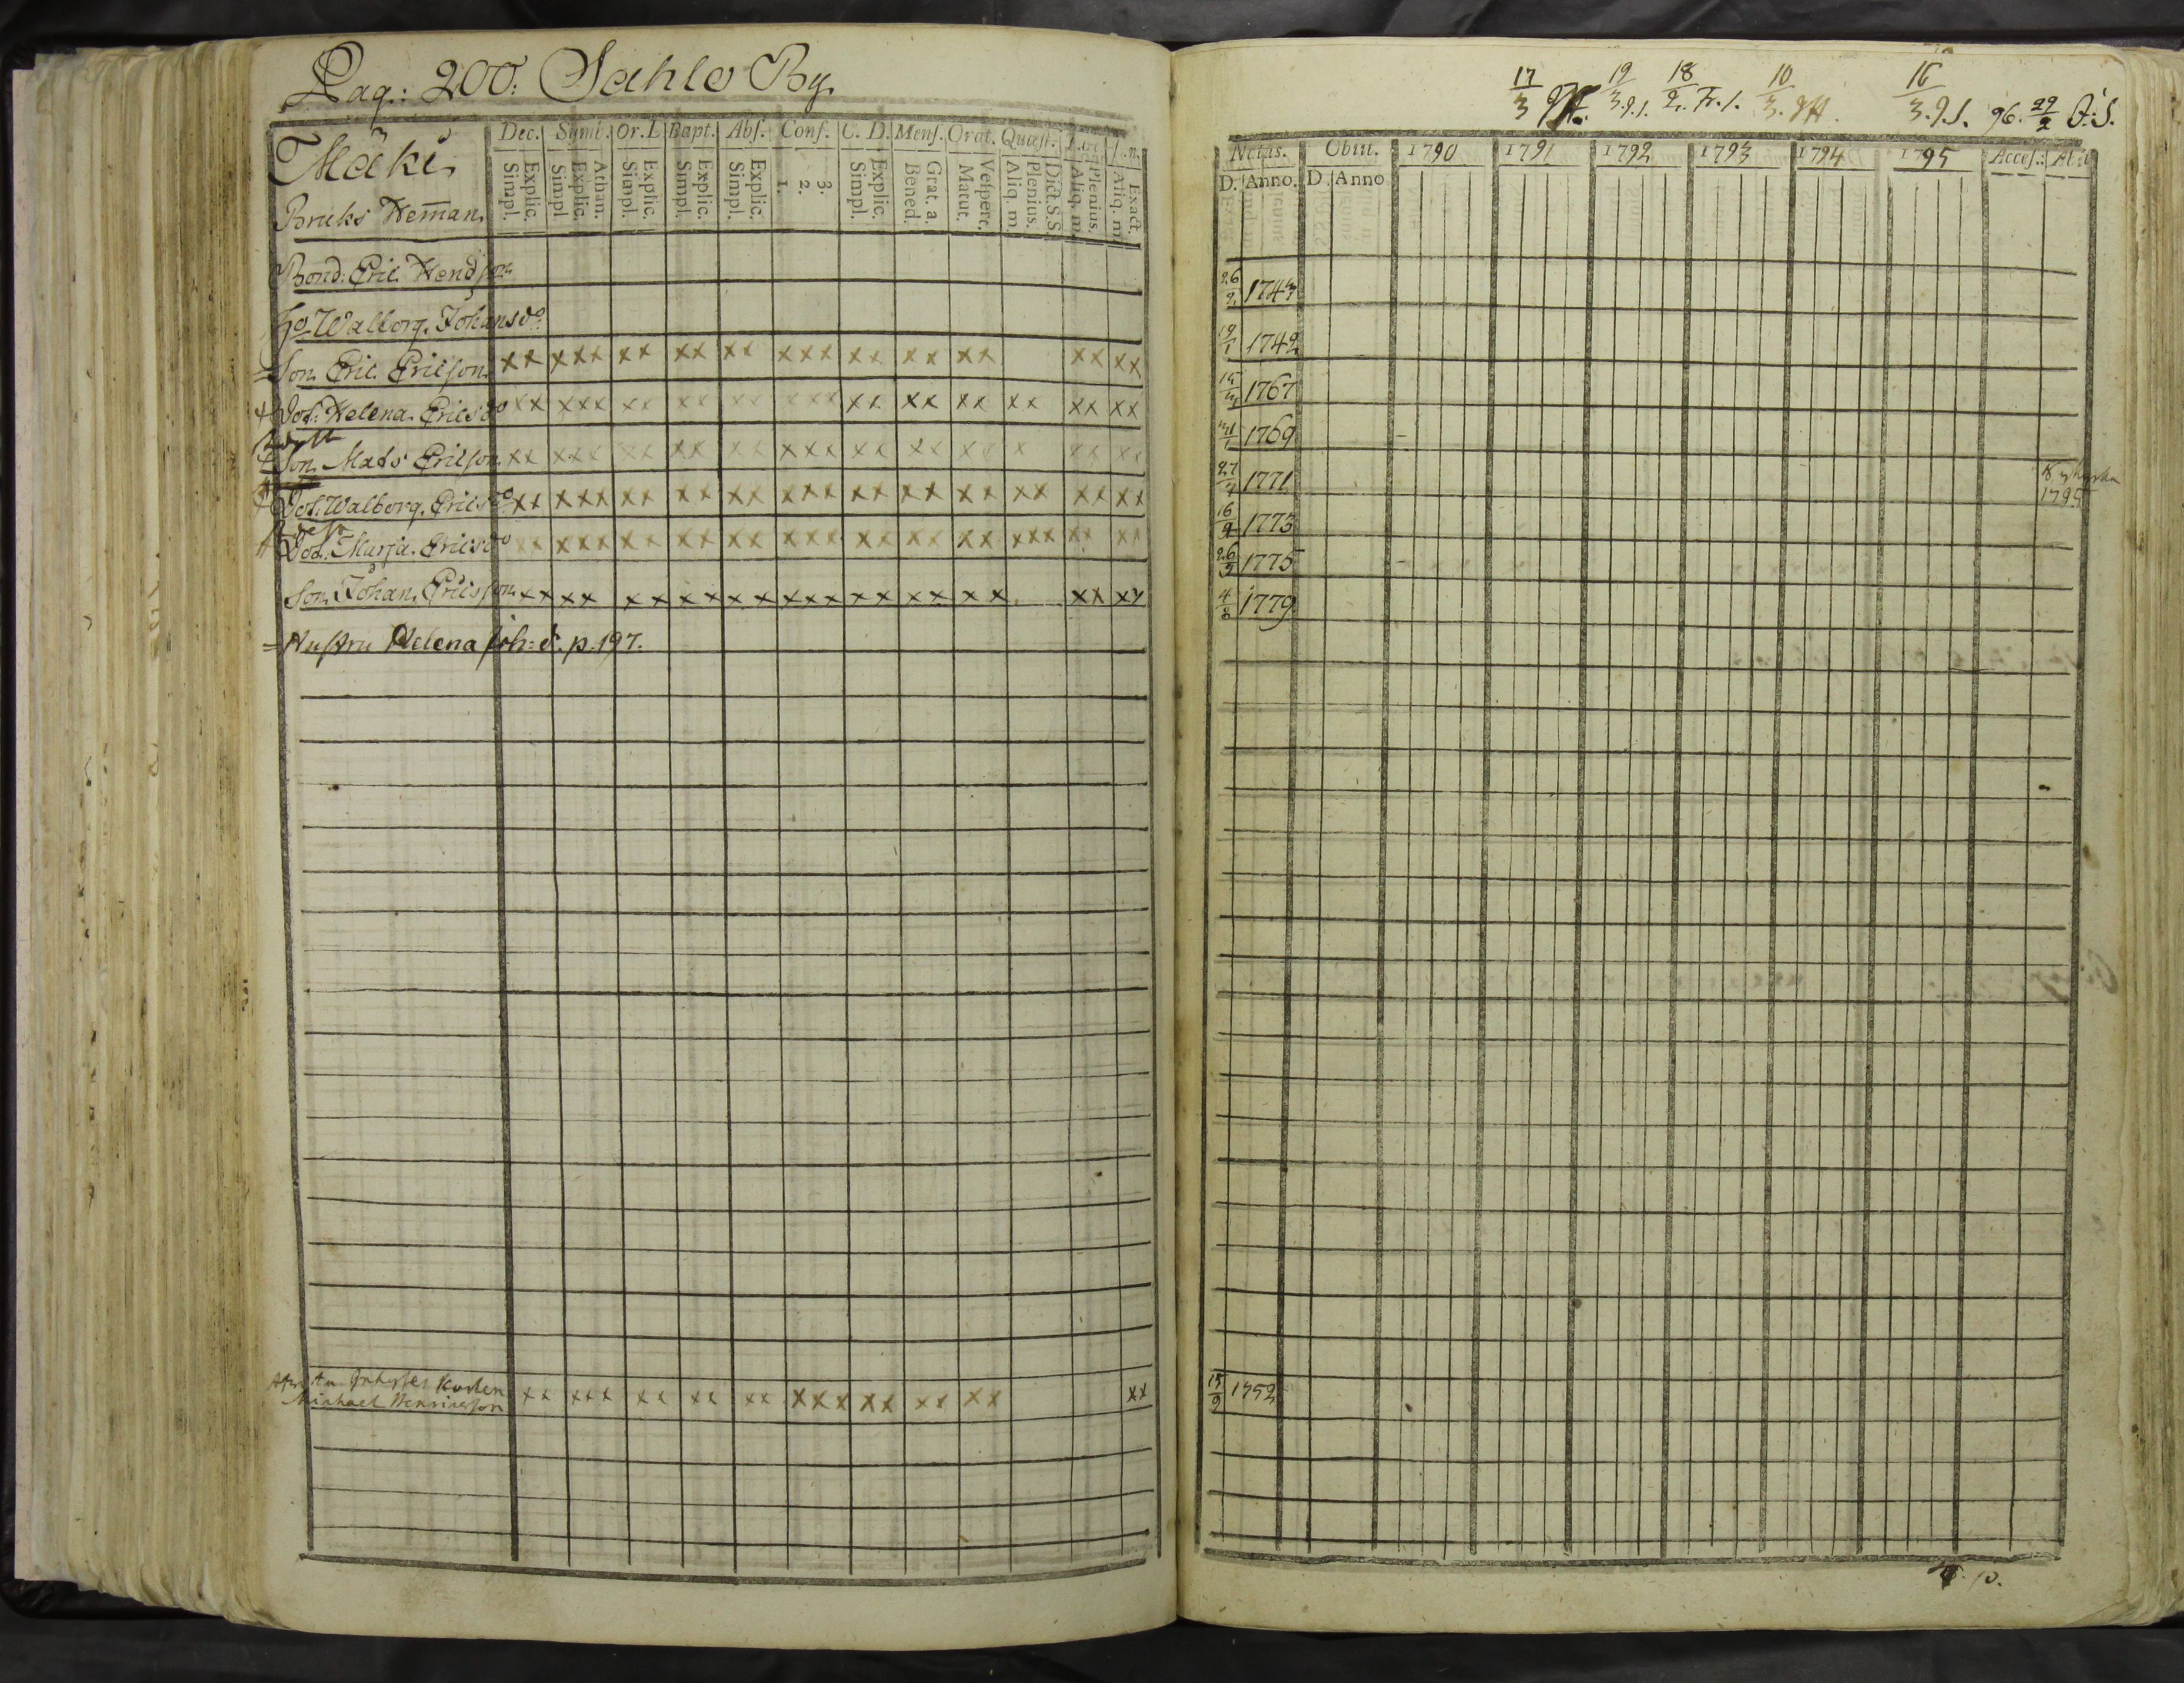 Pag.: 200. Sahlo By.
Mäki
Bruks Heman.
Dec. Symb. Or. D Bapt. Abs. Conf. C. D. Mens. Orat. Quæst.
Simpl. Explic. Simpl. Explic. Athan. Simpl. Explic. Simpl. Explic. Simpl. Explic. 1. 2. 3. Simpl. Explic. Bened. Grat. a. Matut. Vespert. Aliq. m. Plenius. Dict. S.S. Aliq. m. Plenius. Aliq. m. Exact.
Bond: Eric Hendson
Ho Walborg. Johansdo
= Son. Eric Ericson. xx xxx xx xx xx xxx xx xx xx xx xx
+ Dot: Helena Ericsdo xx xxx xx xx xx xxx xx xx xx xx xx xx
Son. Mats Ericson xx xxx xx xx xx xxx xx xx xx x xx xx
Dot. Walborg. Ericsdo xx xxx xx xx xx xxx xx xx xx xx xx xx
Dot. Marja. Ericsdo xx xxx xx xx xx xxx xx xx xx xxx xx xx
Son. Johan. Ericsson xx xx xx xx xx xxx xx xx xx xx xx
= Hustru Helena Joh: d. p. 197.
Inhyses Karlen
Michael Henricsson xx xxx xx xx xx xxx xx xx xx xx
17/3 19/3 18/2. Fr. 1. 10/3. 16/3. 96. 29/2
Natus. Obiit. 1790 1791 1792 1793 1794 1795 Acces.: Abit
D. Anno. D. Anno
26/2 1743
19/1 1742
1767
1769
27/4 1771
1795
16/2 1773
26/9 1775
4/8 1779
15/9 1752